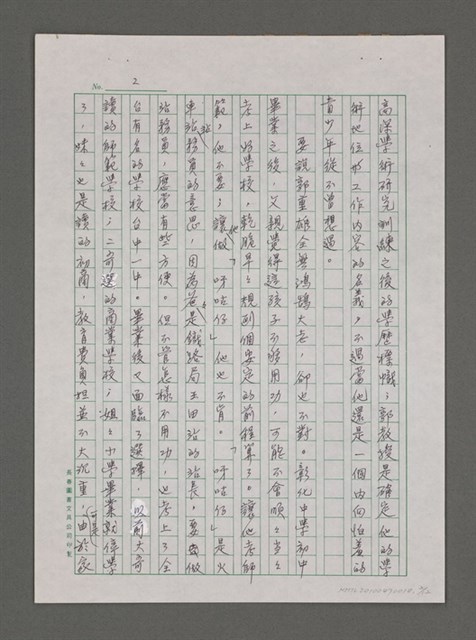 No. 2
高深學術研究訓練之後的學歷標幟；郭教授是確定他的學
術地位和工作內容的名義，不過當他還是一個內向怕羞的
青少年從不曾想過。
要說郭重雄全無鴻鵠大志，卻也不對。彰化中學初中
畢業之後，父親覺得這孩子不夠用功，可能不會順順當當
考上好學校，乾脆早早規劃個安定的前程算了。讓他考師
範，他不要；讓他做「呀咕仔」他也不肯。「呀咕仔」是火
車站站務員的意思，因為爸爸是鐵路局玉田站的站長，要做
站務員，應當有些方便。但不管怎樣不用功，也考上了全
台有名的學校台中一中。畢業後又面臨了選擇，以前大哥
讀的師範學校；二哥選的商業學校；姐姐小學畢業就停學
了，妹妹也是讀的初商，教育費負擔並不大沉重。由於家
長春圖畫文具公司印製